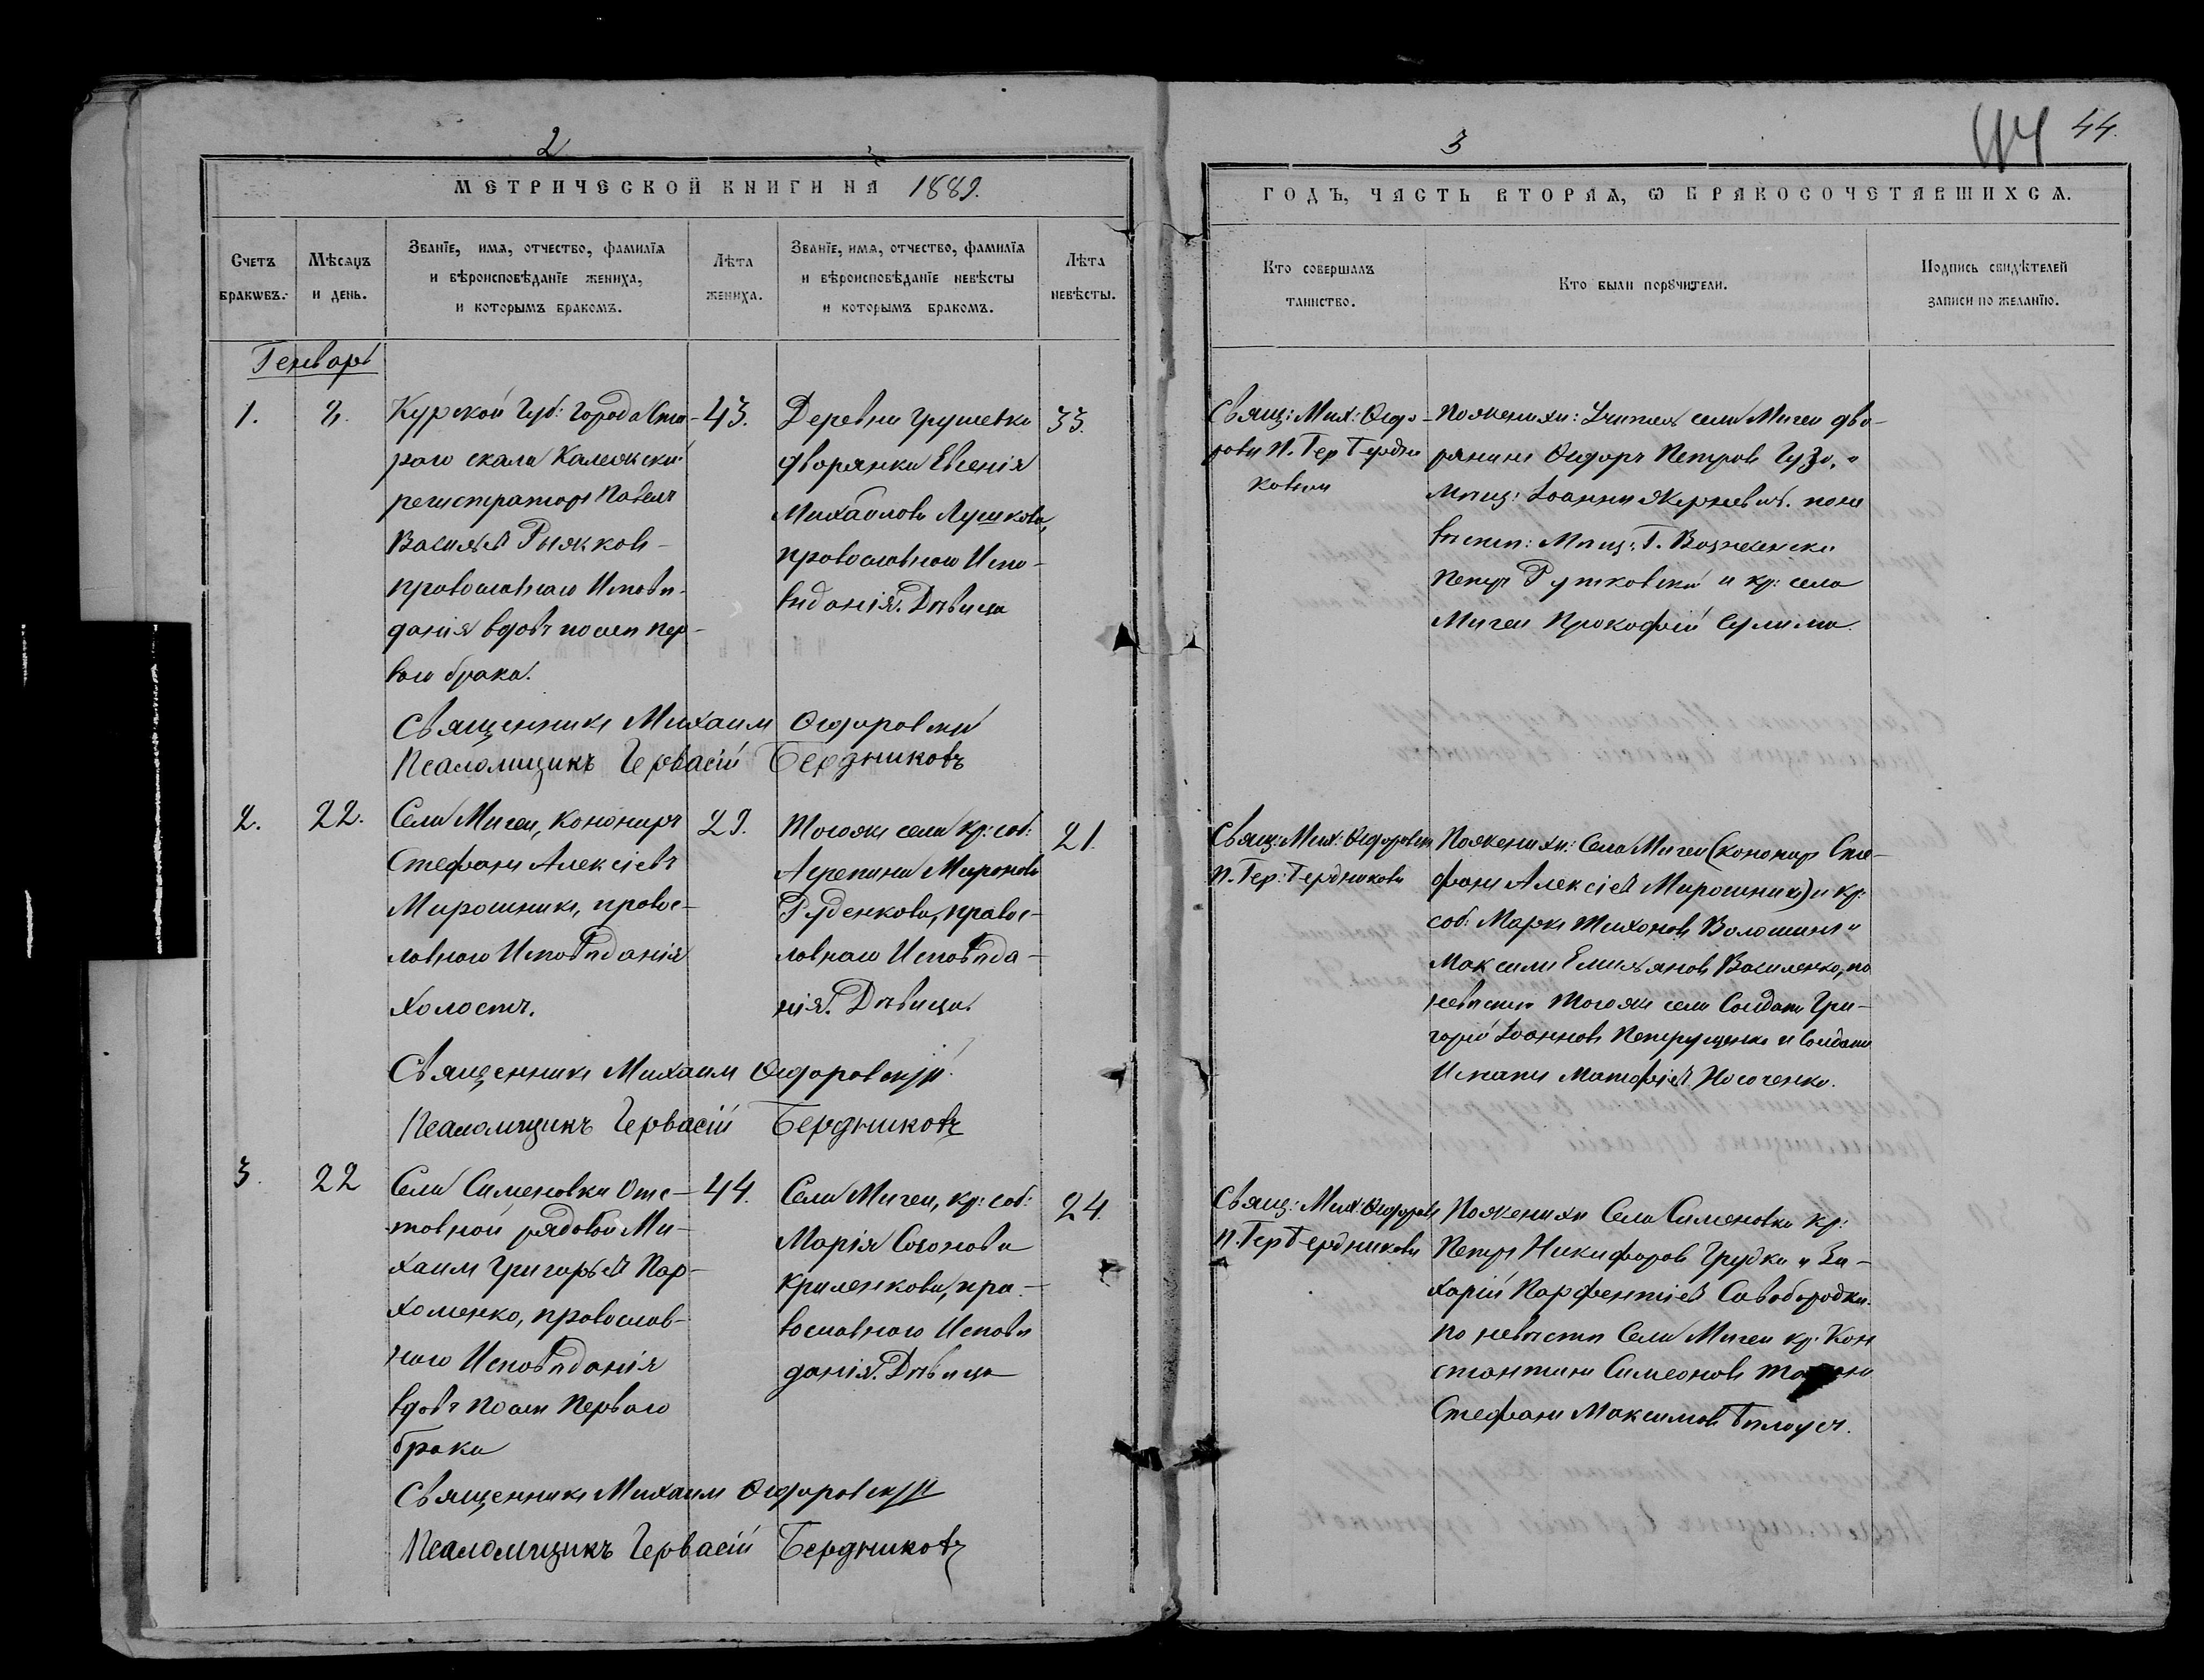 2
МЕТРИЧЕСКОЙ КНИГИ НА 1889.
Счетъ браковъ.
Мѣсяцъ и день.
Званїе, имѧ, отчество, фамилїѧ
и вѣроисповѣданїе жениха,
и которымъ бракомъ.
Лѣта жениха.
Званїе, имѧ, отчество, фамилїѧ
и вѣроисповѣданїе невѣсты
и которымъ бракомъ.
Лѣта невѣсты.
Генварь
1.
8.
Курской Губ: города Ста-
раго скала Колежский
регистраторъ Павелъ
Васильевъ Рыжковъ
православнаго Исповѣ-
данія вдовъ послѣ пер-
ваго брака.
43.
Деревни Грушевки
дворянка Евгенія
Михайлова Лушкова,
православнаго Испо-
вѣданія. Дѣвица
33.
Священникъ Михаилъ Ѳедоровскій
Псаломщикъ Гервасій Бердниковъ
2.
22.
Села Мигеи, канониръ
Стефанъ Алексіевъ
Мирошникъ, правос-
лавнаго Исповѣданія
холостъ.
29.
Тогожъ села кр: соб:
Агрепина Миронова
Руденкова, правос-
лавнаго Исповѣда-
нія. Дѣвица.
21.
Священникъ Михаилъ Ѳедоровскій
Псаломщикъ Гервасій Бердниковъ
3.
22
Села Сименовки Отс-
тавной рядовой Ми-
хаилъ Григорьевъ Пар-
хоменко, православ-
наго Исповѣданія
вдовъ послѣ перваго
брака
44.
Села Мигеи, кр: соб:
Марія Созонова
Криленкова, пра-
вославнаго Исповѣ
данія. Дѣвица
24.
Священникъ Михаилъ Ѳедоровскій
Псаломщикъ Гервасій Бердниковъ
3
44
44.
ГОДЪ, ЧАСТЬ ВТОРАѦ, Ѡ БРАКОСОЧЕТАВШИХСѦ.
Кто совершалъ
таинство.
Кто были порꙋчители.
Подпись свидѣтелей
записи по желанїю.
Свящ: Мих: Ѳедо-
ровъ П. Гер Бердни
ковым
По женихѣ: Учитель села Мигеи дво-
рянинъ Ѳедоръ Петровъ
мѣщ: Іоаннъ по не
вѣстѣ: Мѣщ: Г. Вознесенска
Петръ Рутковскій и кр: села
Мигеи Прокофій Сулима.
Свящ: Мих: Ѳедоровск
П. Гер: Бердниковъ
По женихѣ: Села Мигеи (канонир Сте-
фанъ Алексіевъ Мирошникъ) и кр:
соб: Маркъ Тихоновъ Волошинъ и
Максимъ Емильяновъ Василенко, по
невѣстѣ Тогожъ села Солдатъ Гри-
горій Іоанновъ Петрущенко и Солдатъ
Игнатъ Матфіевъ Носоченко.
Свящ: Мих: Ѳедоровъ
П. Гер Бердниковъ
По женихѣ Села Сименовки кр:
Петръ Никифоровъ Грудка и За-
харій Парфентіевъ Савобородка.
по невѣстѣ Села Мигеи кр: Кон
стантинъ Симеоновъ
Стефанъ Максимовъ Бѣлоусъ.